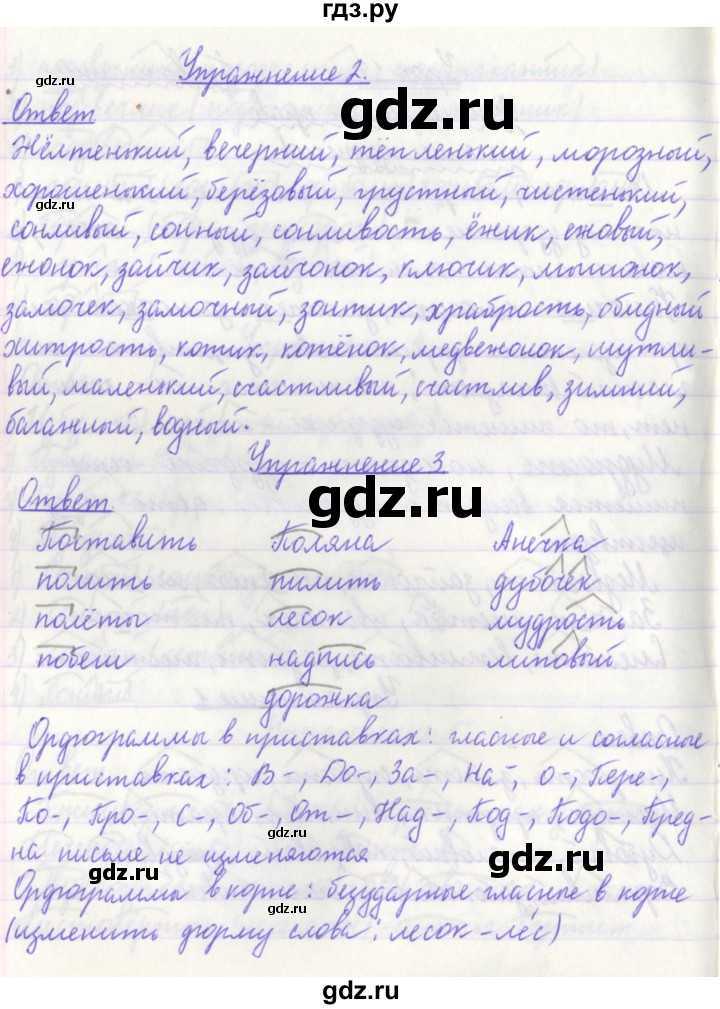 гдз.ру
Упражнение 2.
Ответ
Жёлтенький, вечерний, тёпленький, морозный,
хорошенький, берёзовый, грустный, чистенький,
сонливый, сонный, сонливость, ёжик, ежовый,
ежонок, зайчик, зайчонок, ключик, мышонок,
замочек, замочный, зонтик, храбрость, обидный
хитрость, котик, котёнок, медвежонок, шутли-
вый, маленький, счастливый, счастлив, зимний,
багажный, водный.
Упражнение 3
Ответ
Поставить Поляна Анечка
полить пилить дубочек
полёты лесок мудрость
побеги надпись липовый
дорожка
Орфограммы в приставках: гласные и согласные
в приставках: В-, До-, За-, На-, о-, Пере-,
По-, Про-, С-, Об-, От-, Над-, Под-, Подо-, Пред-
на письме не изменяются
Орфограммы в корне: безударные гласные в корне
(изменить форму слова: лесок-лес)
gdz.ru
gdz.ru
gdz.ru
gdz.ru
gdz.ru
gdz.ru
gdz.ru
gdz.ru
gdz.ru
gdz.ru
gdz.ru
gdz.ru
gdz.ru
gdz.ru